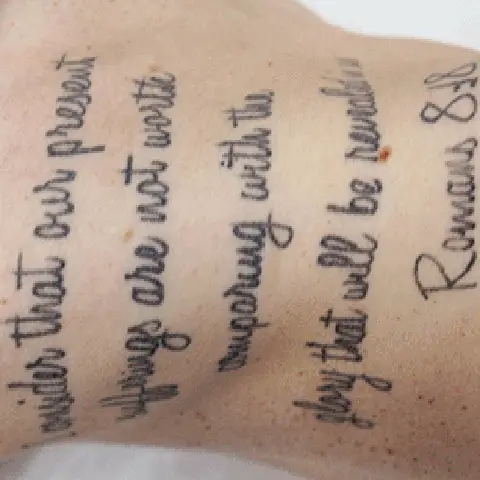 consider that our present
sufferings are not worth
comparing with the
glory that will be
Romans 8:18